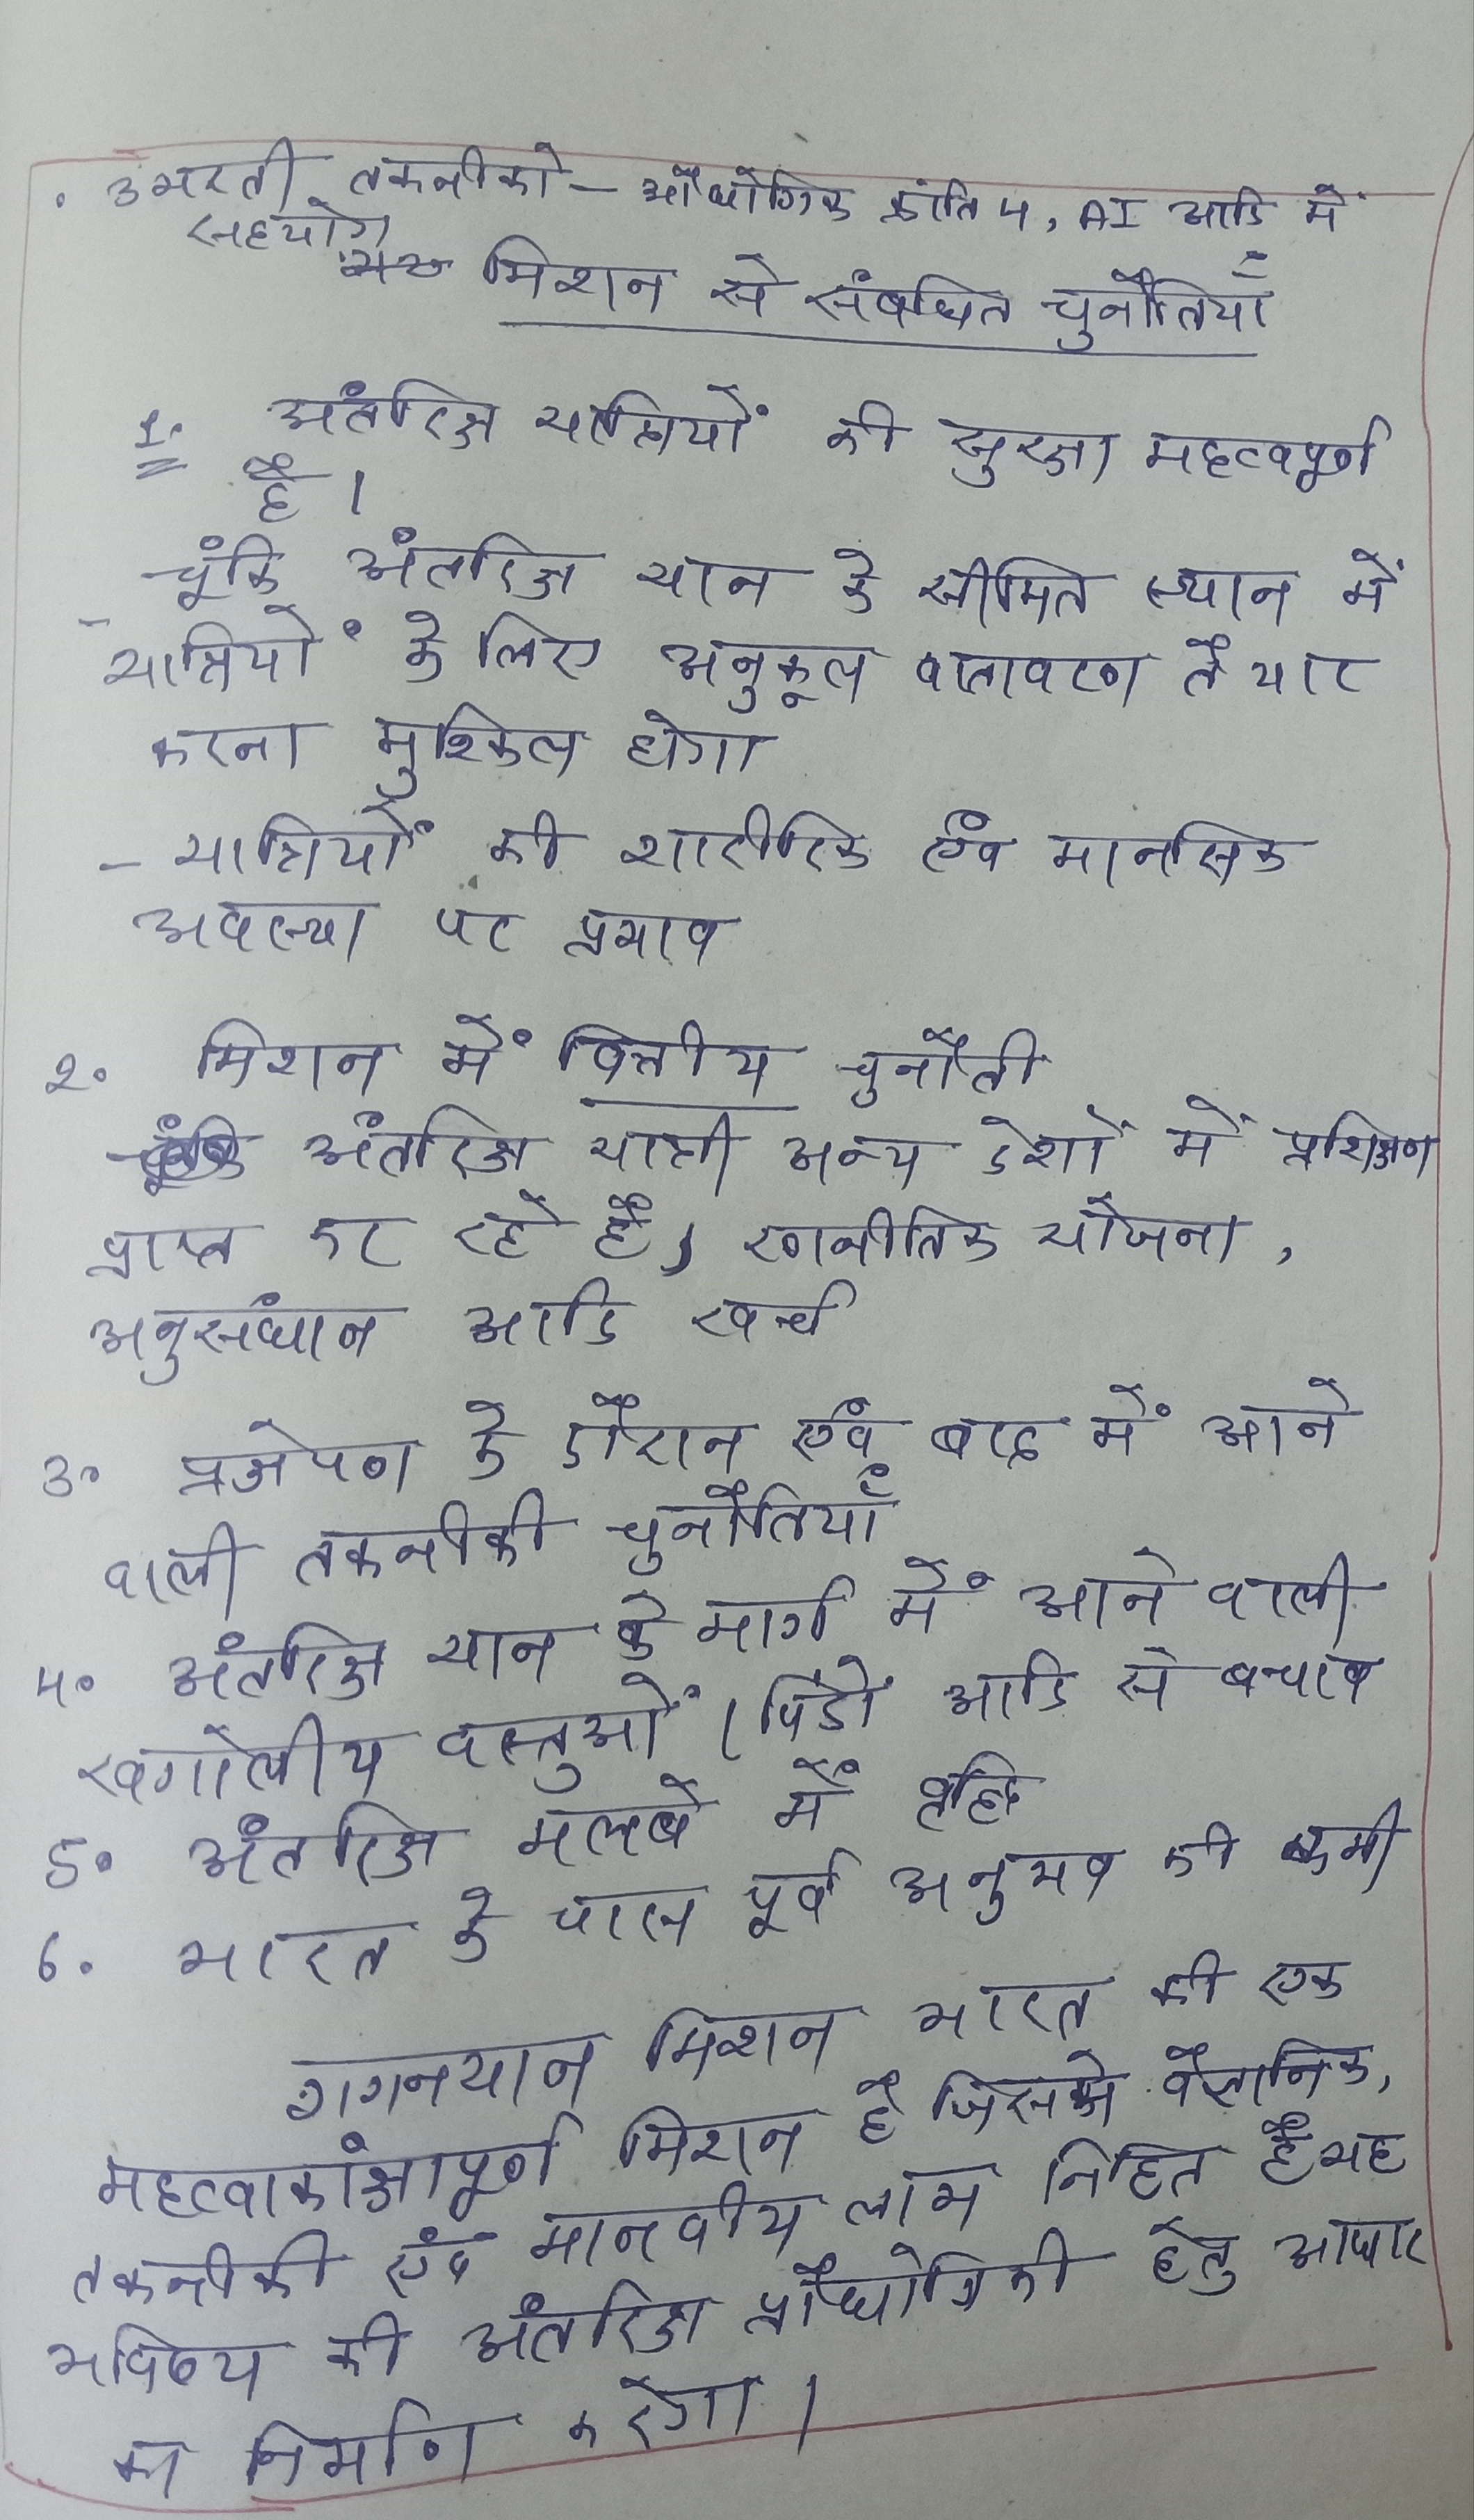 • उभरती तकनीको - औधोगिक क्रांति 4, AI आदि में
सहयोग
मिशन से संबधित चुनौतियाँ
1. अंतरिक्ष यात्रियों की सुरक्षा महत्वपूर्ण
है।
चूंकि अंतरिक्ष यान के सीमित स्थान में
यात्रियों के लिए अनुकूल वातावरण तैयार
करना मुश्किल होगा
- यात्रियों की शारीरिक एंव मानसिक
अवस्था पर प्रभाव
2. मिशन में वित्तीय चुनौती
चूंकि अंतरिक्ष यात्री अन्य देशों में प्रशिक्षण
प्राप्त कर रहे हैं, रणनीतिक योजना,
अनुसंधान आदि खर्च
3. प्रक्षेपण के दौरान एंव बाद में आने
वाली तकनीकी चुनौतियाँ
4. अंतरिक्ष यान के मार्ग में आने वाली
खगोलीय वस्तुओं / पिंडो आदि से बचाव
5. अंतरिक्ष मलबे में वृद्धि
6. भारत के पास पूर्व अनुभव की कमी
गगनयान मिशन भारत की एक
महत्वाकांक्षापूर्ण मिशन है जिसके वैज्ञानिक,
तकनीकी एंव मानवीय लाभ निहित हैं यह
भविष्य की अंतरिक्ष प्रौधोगिकी हेतु आधार
का निर्माण करेगा।